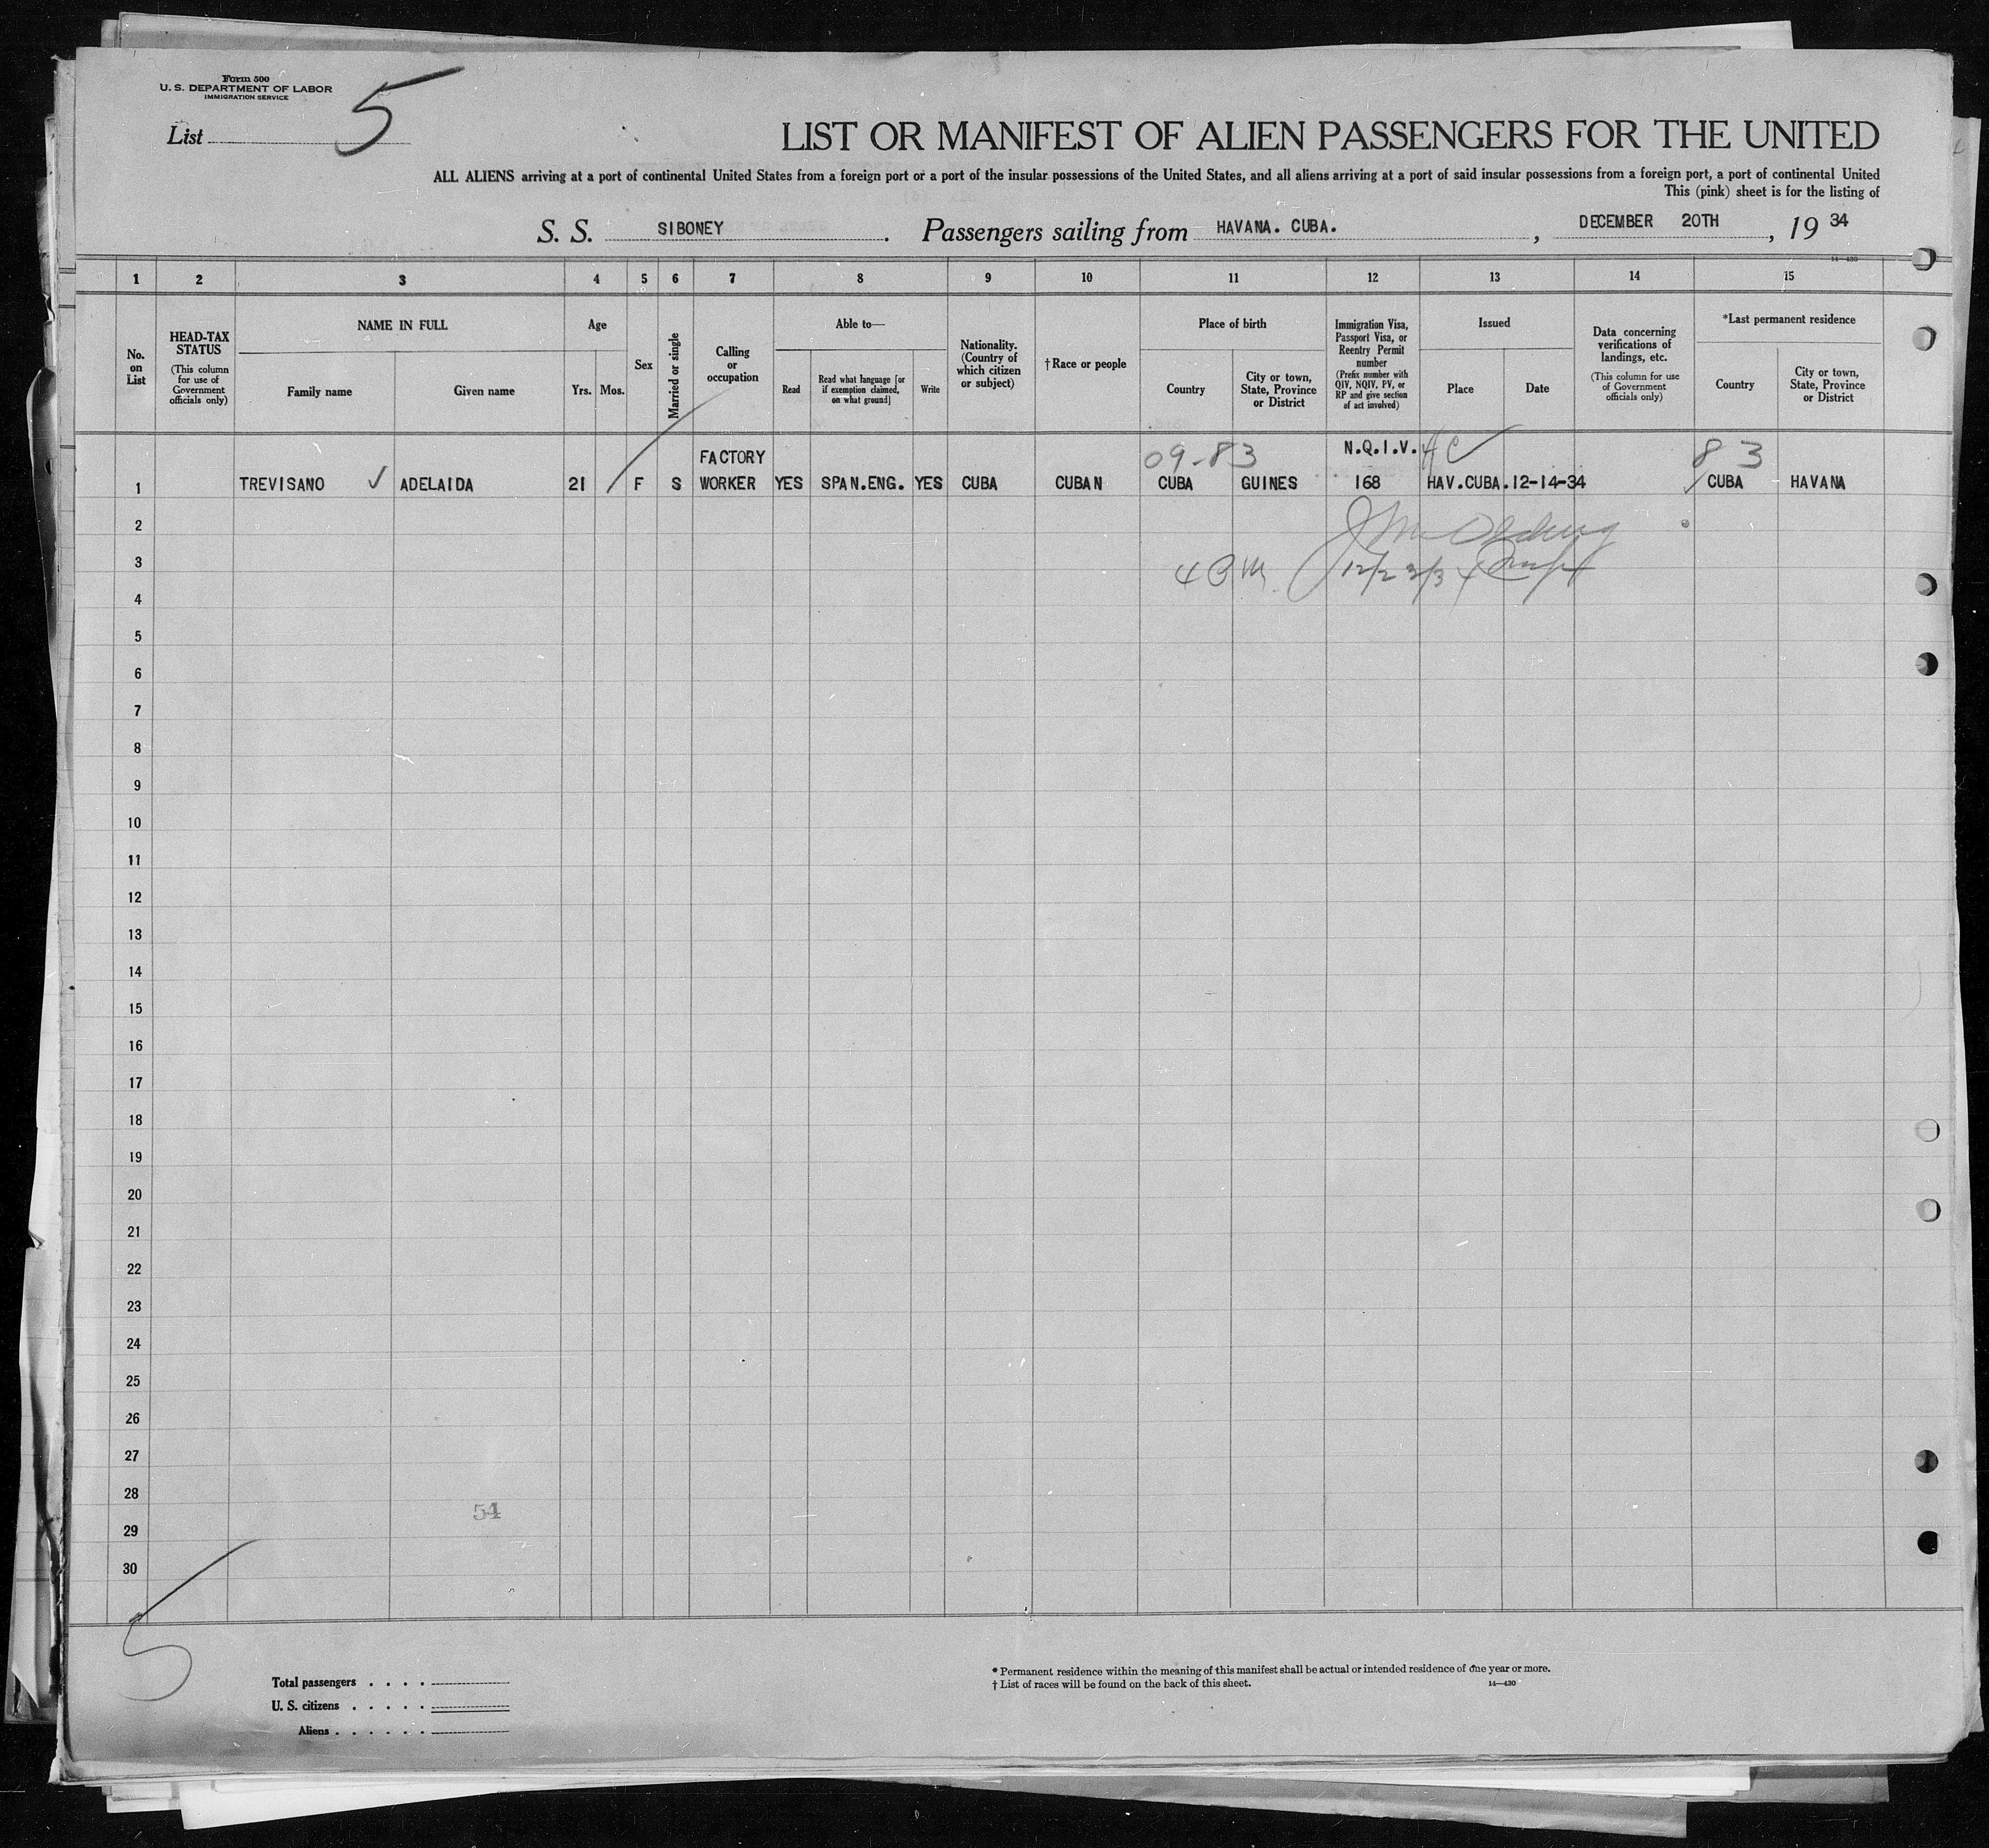 Form 500
U. S. DEPARTMENT OF LABOR
IMMIGRATION SERVICE
List 5
LIST OR MANIFEST OF ALIEN PASSENGERS FOR THE UNITED
ALL ALIENS arriving at a port of continental United States from a foreign port or a port of the insular possessions of the United States, and all aliens arriving at a port of said insular possessions from a foreign port, a port of continental United
This (pink) sheet is for the listing of
S. S. SIBONEY. Passengers sailing from HAVANA. CUBA. , DECEMBER 20TH , 19 34
14—430
1 2 3 4 5 6 7 8 9 10 11 12 13 14 15
No. on List
HEAD-TAX STATUS
(This column for use of Government officials only)
NAME IN FULL
Family name
Given name
Age
Yrs.
Mos.
Sex
Married or single
Calling or occupation
Able to—
Read
Read what language [or if exemption claimed, on what ground]
Write
Nationality. (Country of which citizen or subject)
†Race or people
Place of birth
Country
City or town, State, Province or District
Immigration Visa, Passport Visa, or Reentry Permit number
(Prefix number with QIV, NQIV, PV, or RP and give section of act involved)
Issued
Place
Date
Data concerning verifications of landings, etc.
(This column for use of Government officials only)
*Last permanent residence
Country
City or town, State, Province or District
FACTORY 09-83 N.Q.I.V. 83
1 TREVISANO ADELAIDA 21 F S WORKER YES SPAN.ENG. YES CUBA CUBAN CUBA GUINES 168 HAV.CUBA.12-14-34 CUBA HAVANA
2
3
4
5
6
7
8
9
10
11
12
13
14
15
16
17
18
19
20
21
22
23
24
25
26
27
28
54
29
30
5
Total passengers . . . .
U. S. citizens . . . . .
Aliens . . . . . .
* Permanent residence within the meaning of this manifest shall be actual or intended residence of one year or more.
† List of races will be found on the back of this sheet.
14—430